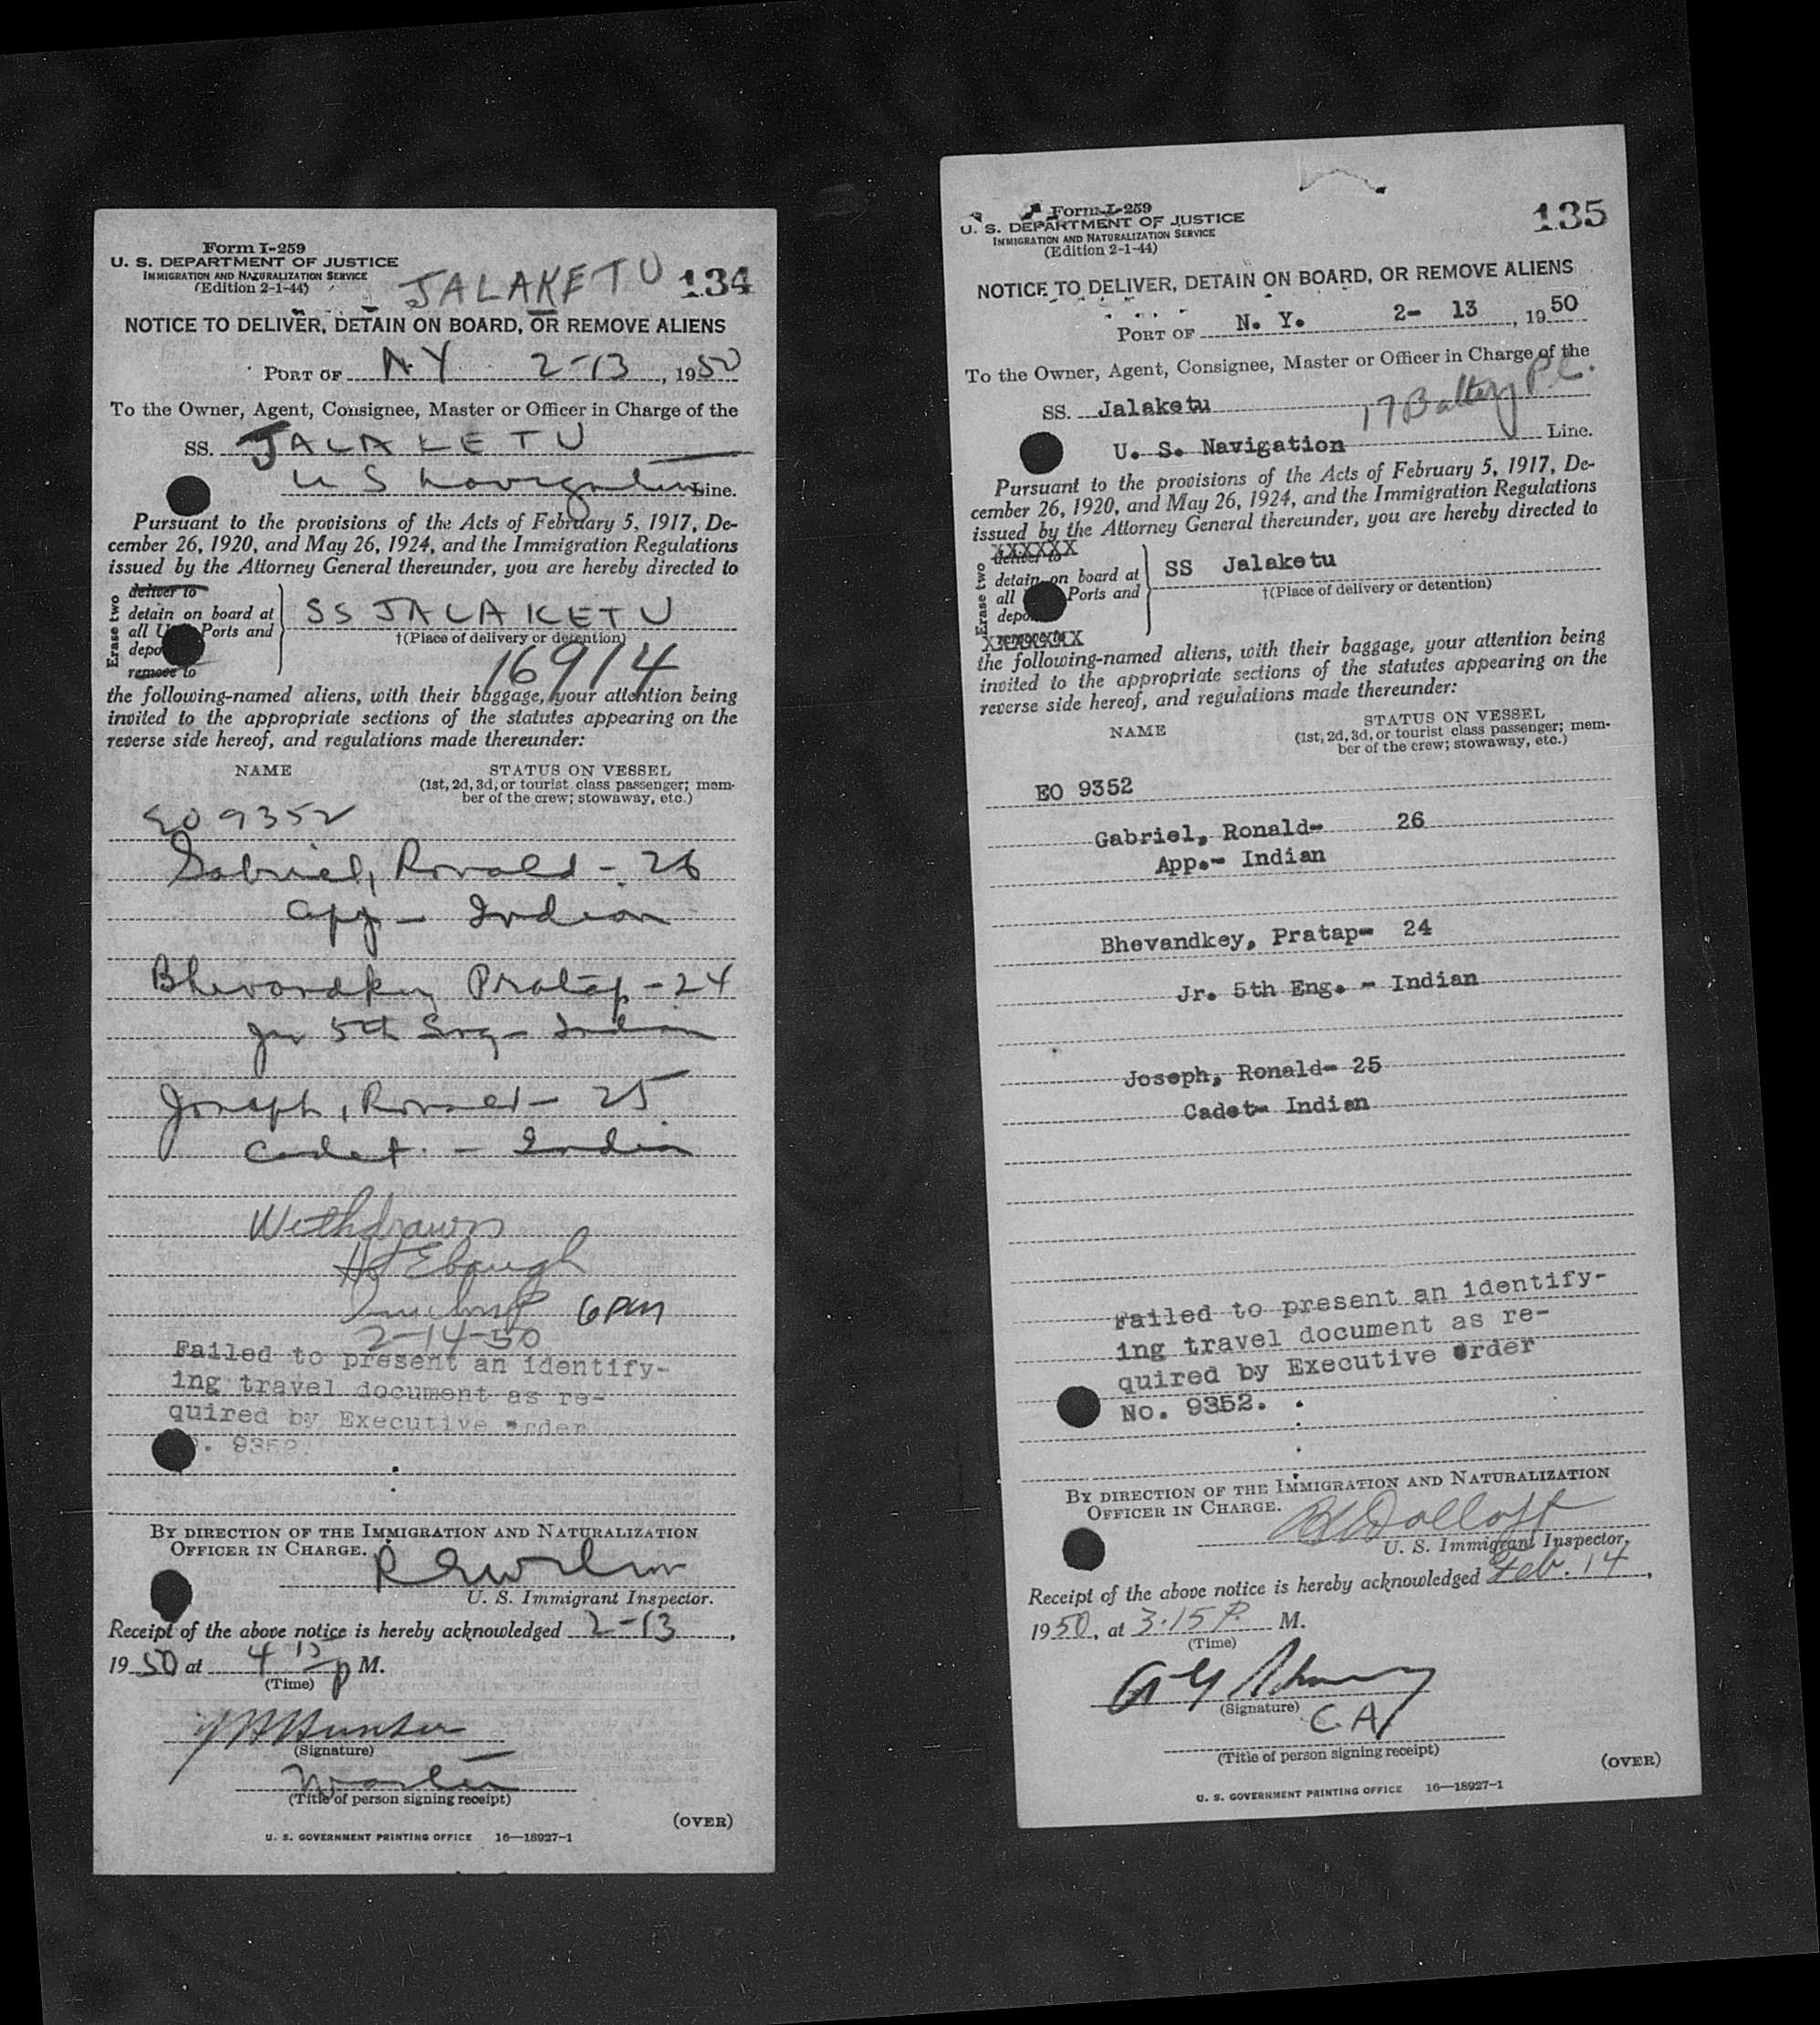 Form I-259
U. S. DEPARTMENT OF JUSTICE
IMMIGRATION AND NATURALIZATION SERVICE
(Edition 2-1-44)
JALAKETU 134
NOTICE TO DELIVER, DETAIN ON BOARD, OR REMOVE ALIENS
PORT OF NY 2-13, 1950
To the Owner, Agent, Consignee, Master or Officer in Charge of the
SS. JALAKETU
U S Navigation Line.
Pursuant to the provisions of the Acts of February 5, 1917, De-
cember 26, 1920, and May 26, 1924, and the Immigration Regulations
issued by the Attorney General thereunder, you are hereby directed to
Erase two
deliver to
detain on board at
all U Ports and
depo
remove to
SS JALAKETU
†(Place of delivery or detention)
16914
the following-named aliens, with their baggage, your attention being
invited to the appropriate sections of the statutes appearing on the
reverse side hereof, and regulations made thereunder:
NAME STATUS ON VESSEL
(1st, 2d, 3d, or tourist class passenger; mem-
ber of the crew; stowaway, etc.)
EO 9352
Gabriel, Ronald - 26
App - Indian
Bhevandkey Pratap - 24
Jr 5th Eng - Indian
Joseph, Ronald - 25
Cadet - Indian
Withdrawn
Ebaugh
6 PM
2-14-50
Failed to present an identify-
ing travel document as re-
quired by Executive Order
. 9352.
BY DIRECTION OF THE IMMIGRATION AND NATURALIZATION
OFFICER IN CHARGE.
U. S. Immigrant Inspector.
Receipt of the above notice is hereby acknowledged 2-13,
1950 at 4 15 P M.
(Time)
Hunter
(Signature)
Master
(Title of person signing receipt)
(OVER)
U. S. GOVERNMENT PRINTING OFFICE 16—18927-1
Form I-259
U. S. DEPARTMENT OF JUSTICE
IMMIGRATION AND NATURALIZATION SERVICE
(Edition 2-1-44)
135
NOTICE TO DELIVER, DETAIN ON BOARD, OR REMOVE ALIENS
PORT OF N. Y. 2- 13, 1950
To the Owner, Agent, Consignee, Master or Officer in Charge of the
SS. Jalaketu 17 Battery Pl.
U. S. Navigation Line.
Pursuant to the provisions of the Acts of February 5, 1917, De-
cember 26, 1920, and May 26, 1924, and the Immigration Regulations
issued by the Attorney General thereunder, you are hereby directed to
Erase two
deliver to
detain on board at
all Ports and
depo
remove to
SS Jalaketu
†(Place of delivery or detention)
the following-named aliens, with their baggage, your attention being
invited to the appropriate sections of the statutes appearing on the
reverse side hereof, and regulations made thereunder:
NAME STATUS ON VESSEL
(1st, 2d, 3d, or tourist class passenger; mem-
ber of the crew; stowaway, etc.)
EO 9352
Gabriel, Ronald- 26
App.- Indian
Bhevandkey, Pratap- 24
Jr. 5th Eng. - Indian
Joseph, Ronald- 25
Cadet- Indian
Failed to present an identify-
ing travel document as re-
quired by Executive Order
No. 9352.
BY DIRECTION OF THE IMMIGRATION AND NATURALIZATION
OFFICER IN CHARGE.
Dolloff
U. S. Immigrant Inspector.
Receipt of the above notice is hereby acknowledged Feb. 14,
1950, at 3:15 P. M.
(Time)
(Signature)
C.A.
(Title of person signing receipt)
(OVER)
U. S. GOVERNMENT PRINTING OFFICE 16—18927-1